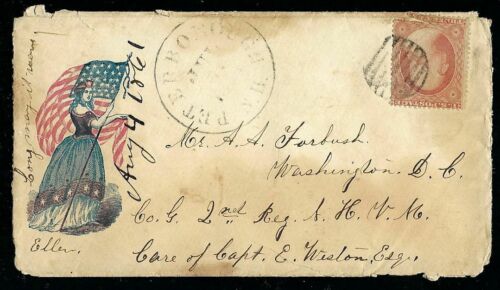 Long may it wave
Aug 4 1861
Ellen.
PETERBOROUGH N.H.
Mr. A. A. Forbush
Washington D.C.
Co. G. 2nd Reg. N. H. V. M.
Care of Capt. E. Weston, Esq.